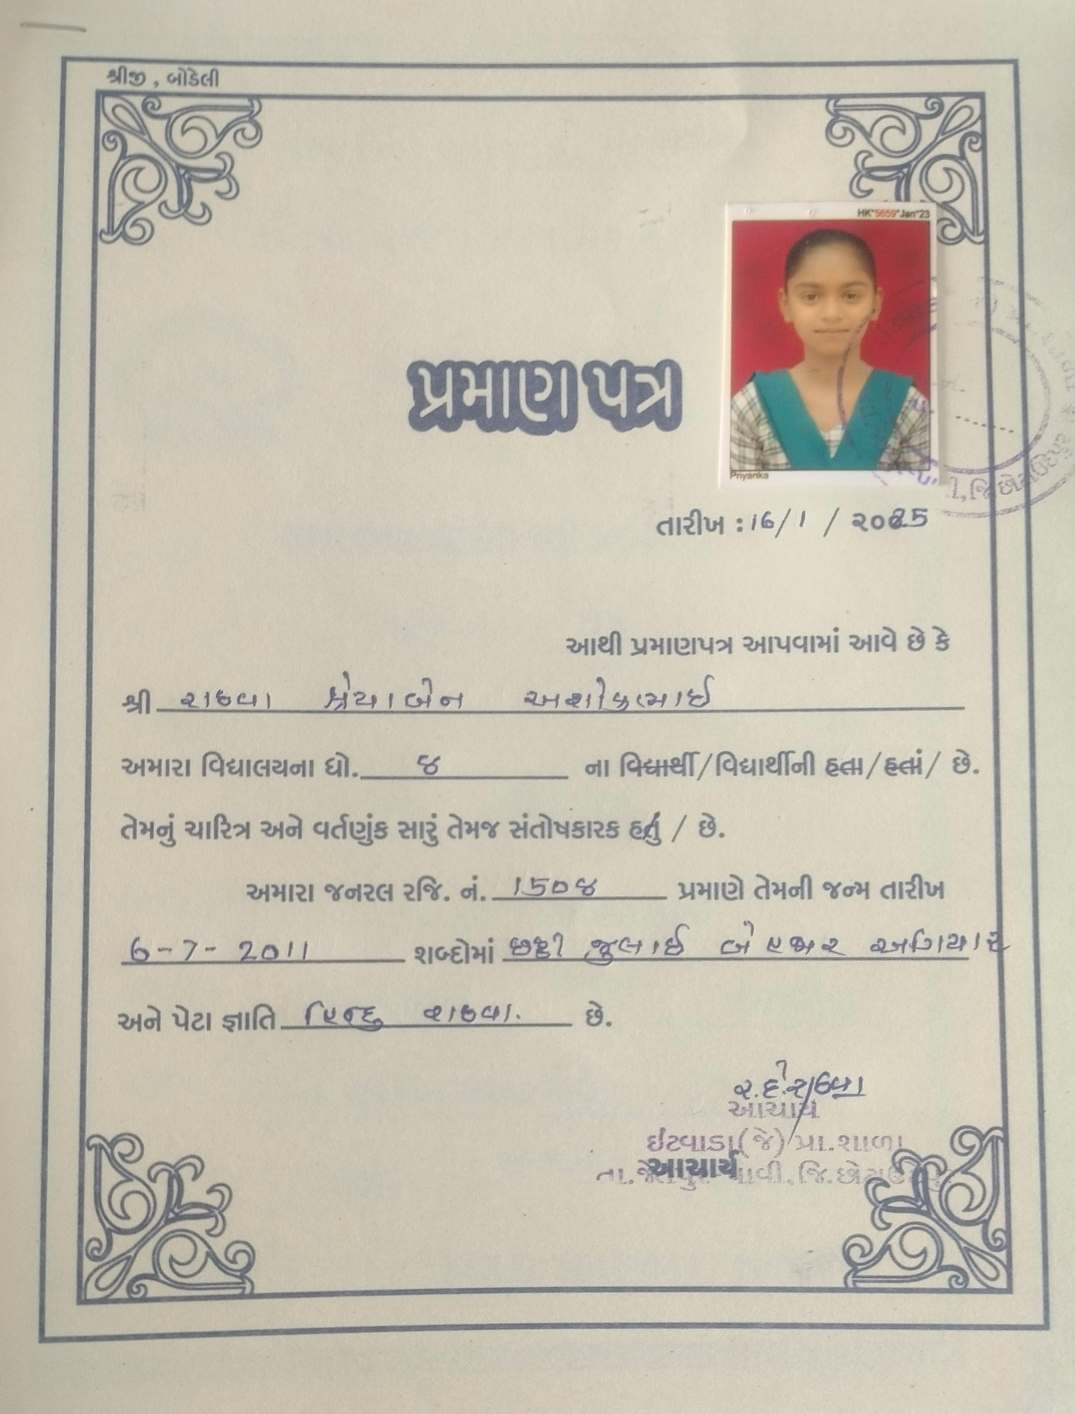 શ્રીજી , બોડેલી
HK*5659*Jan*23
પ્રમાણ પત્ર
Priyanka
તારીખ : 16/1 / ૨૦25
આથી પ્રમાણપત્ર આપવામાં આવે છે કે
શ્રી રાઠવા શ્રેયાબેન અશોકભાઈ
અમારા વિદ્યાલયના ધો. ૪ ના વિદ્યાર્થી/વિદ્યાર્થીની હતા/હતાં/ છે.
તેમનું ચારિત્ર અને વર્તણુંક સારું તેમજ સંતોષકારક હતું / છે.
અમારા જનરલ રજિ. નં. 150૪ પ્રમાણે તેમની જન્મ તારીખ
6-7-2011 શબ્દોમાં છઠ્ઠી જુલાઈ બે હજાર અગિયાર
અને પેટા જ્ઞાતિ હિન્દુ રાઠવા. છે.
ર.દે.રાઠવા
આચાર્ય
ઈટવાડા(જે) પ્રા.શાળા
આચાર્ય
તા.જેતપુર પાવી,જિ.છોટાઉદેપુર